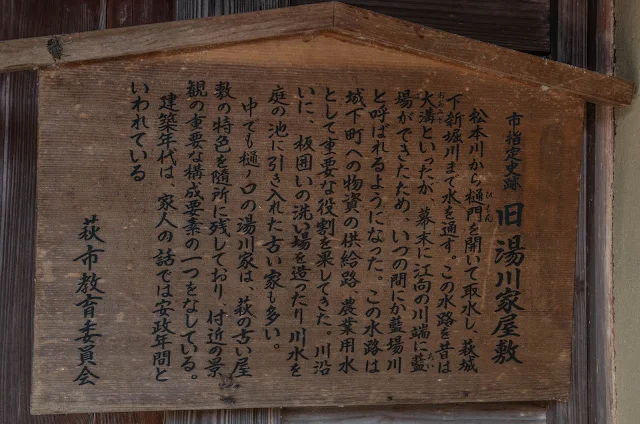 市指定史跡 旧湯川家屋敷
松本川から樋門を開いて取水し、萩城
ひもん
下新堀川まで水を通す。この水路を昔は
大溝といったが、幕末に江向の川端に藍
おおみぞ
あい
場ができたため、いつの間にか藍場川
と呼ばれるようになった。この水路は
城下町への物資の供給路、農業用水
として重要な役割を果してきた。川沿
いに、板囲いの洗い場を造ったり、川水を
庭の池に引き入れた古い家も多い。
中でも樋ノ口の湯川家は、萩の古い屋
敷の特色を随所に残しており、付近の景
観の重要な構成要素の一つをなしている。
建築年代は、家人の話では安政年間と
いわれている
萩市教育委員会